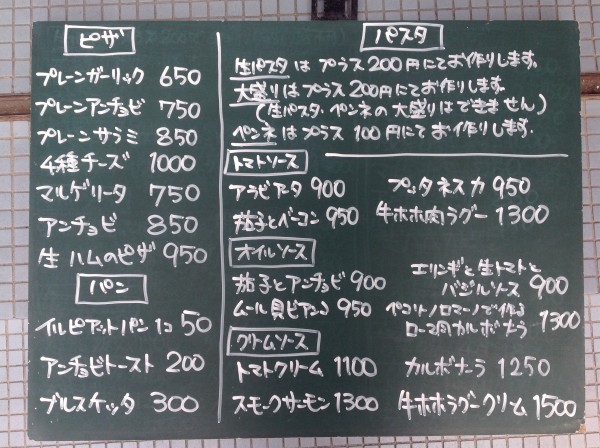 ピザ
プレーンガーリック 650
プレーンアンチョビ 750
プレーンサラミ 850
4種チーズ 1000
マルゲリータ 750
アンチョビ 850
生ハムのピザ 950
パン
イルピアットパン1コ 50
アンチョビトースト 200
ブルスケッタ 300
パスタ
生パスタはプラス200円にてお作りします。
大盛りはプラス200円にてお作りします。
(生パスタ、ペンネの大盛りはできません)
ペンネはプラス100円にてお作りします。
トマトソース
アラビアータ 900
茄子とベーコン 950
プッタネスカ 950
牛ホホ肉ラグー 1300
オイルソース
茄子とアンチョビ 900
ムール貝ビアンコ 950
エリンギと生トマトと
バジルソース 900
ペコリーノロマーノで作る
ローマ風カルボナーラ 1300
クリームソース
トマトクリーム 1100
スモークサーモン 1300
カルボナーラ 1250
牛ホホラグークリーム 1500